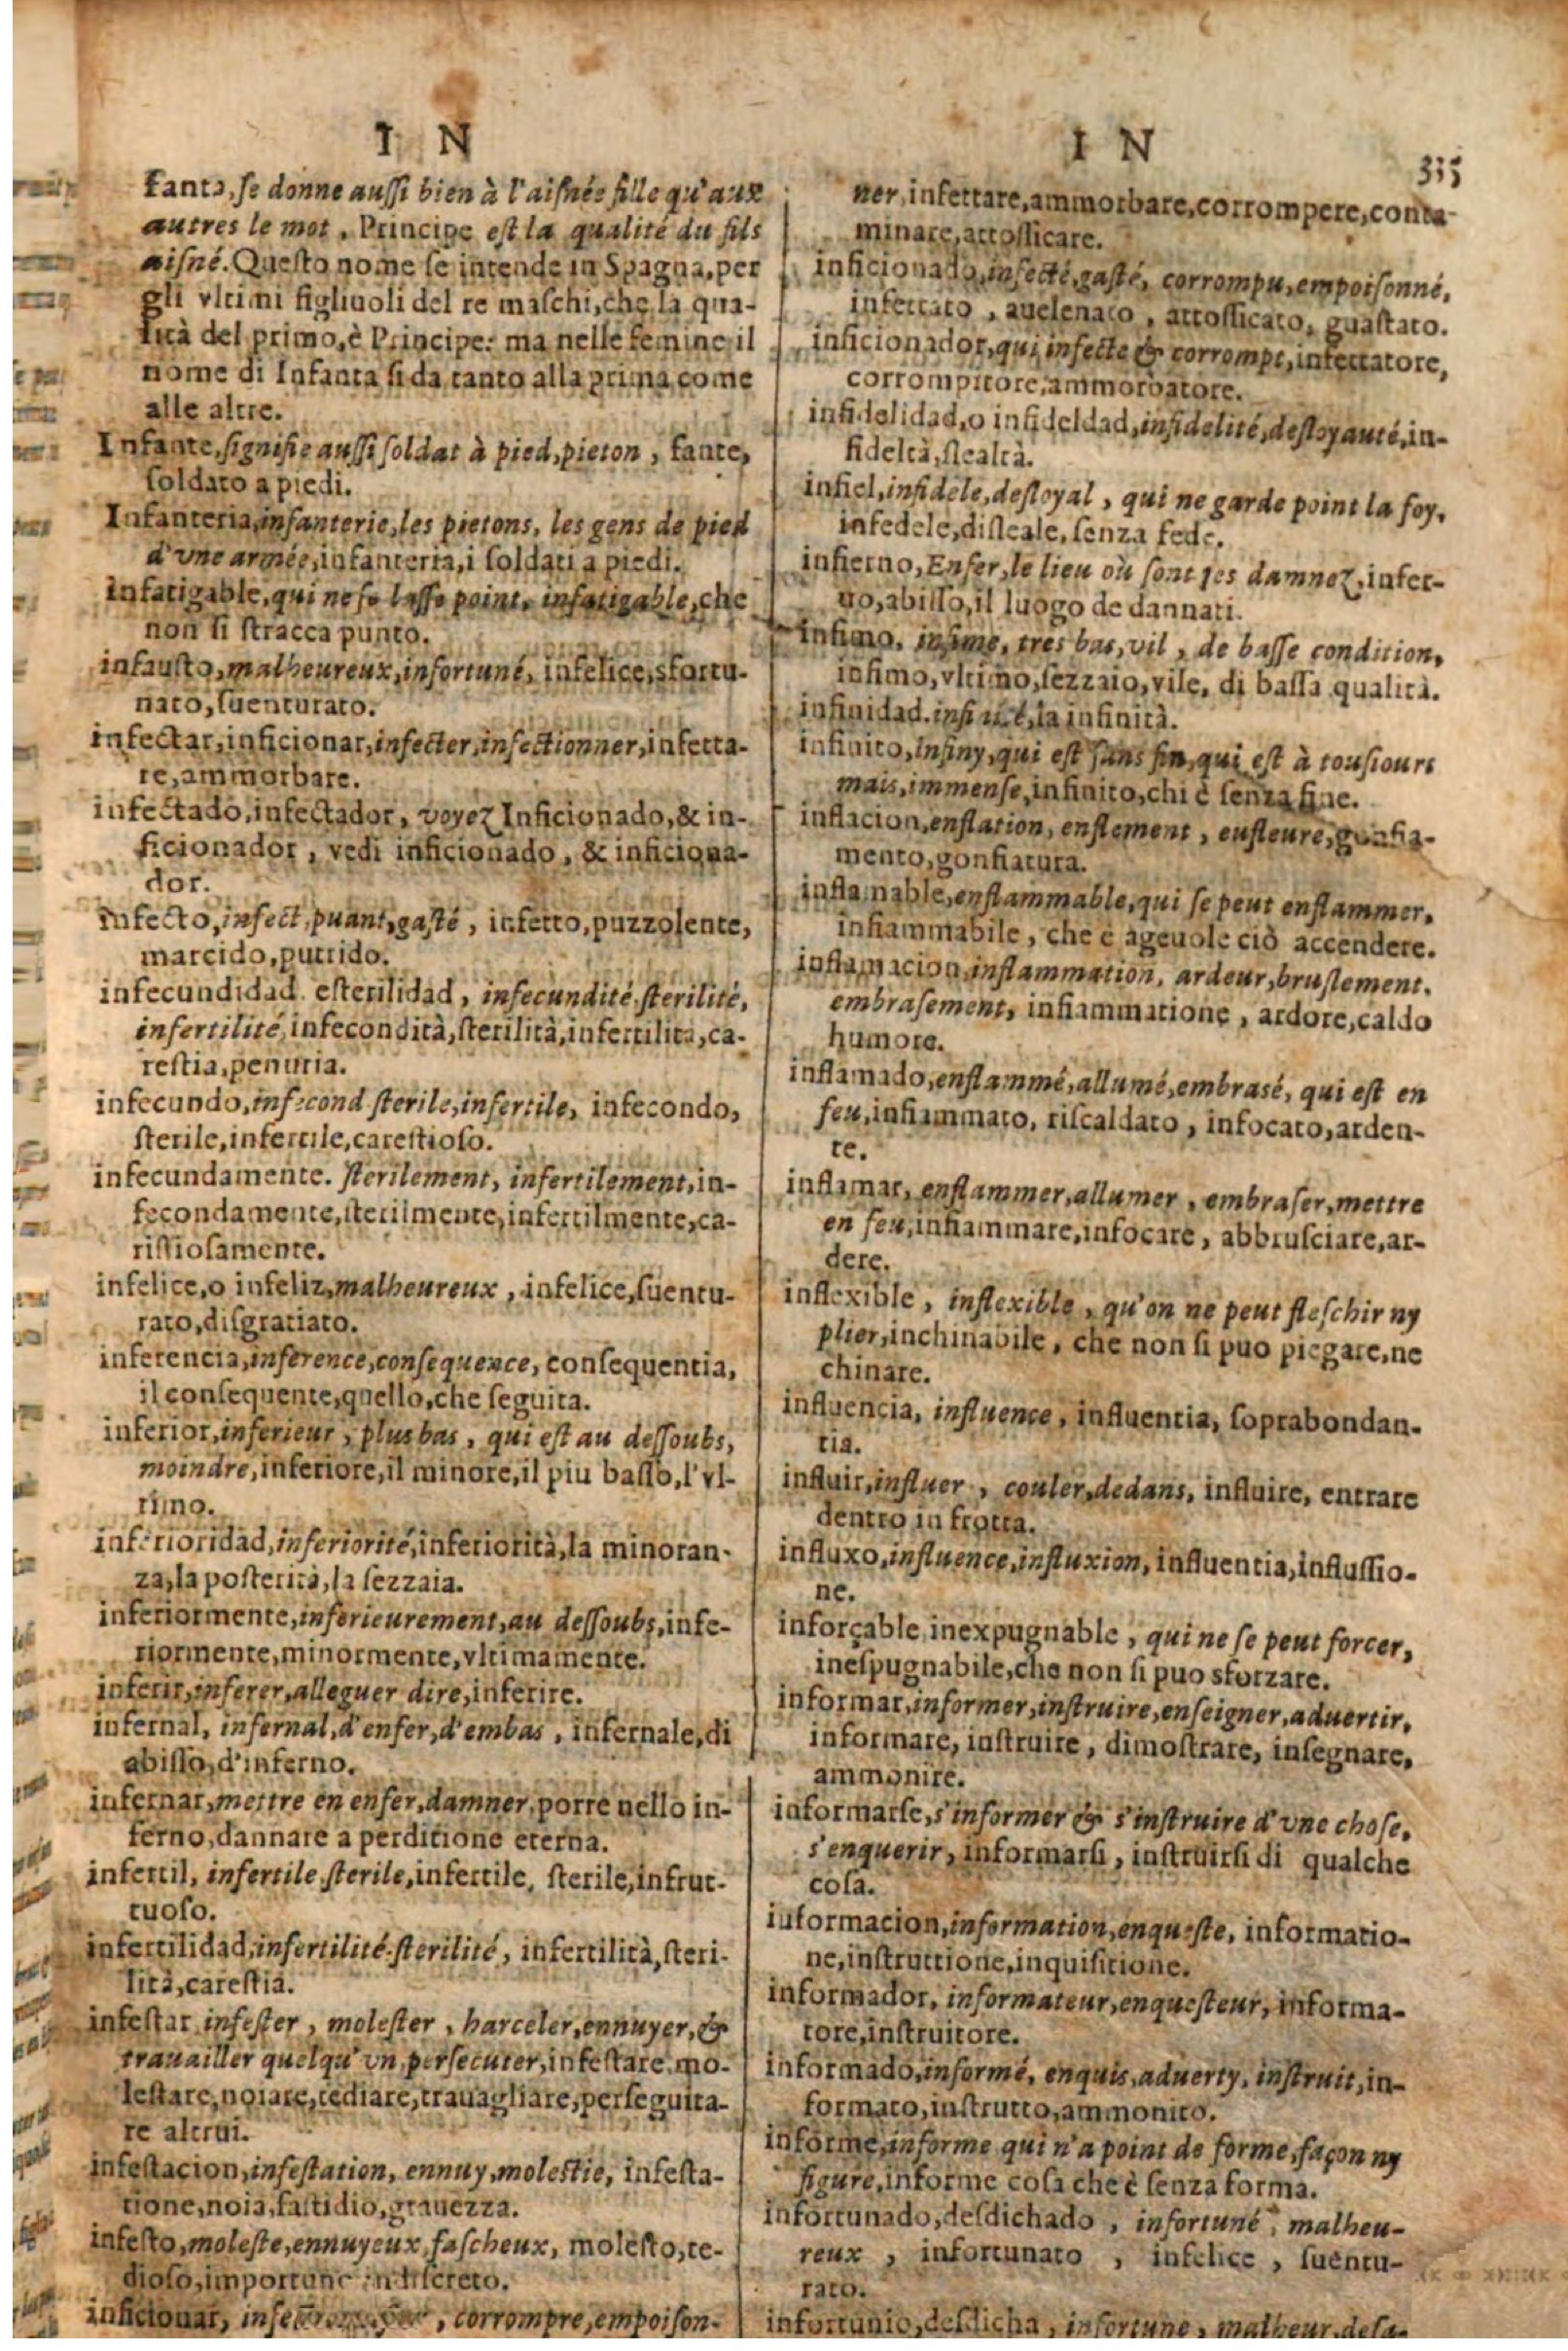 I N
fanta, ſe donne auſſi bien à l'aiſnée fille qu'aux
autres le mot, Principe eſt la qualité du fils
aiſné. Queſto nome ſe intende in Spagna, per
gli vltimi figliuoli del re maſchi, che la qua-
lità del primo, è Principe: ma nelle femine il
nome di Infanta ſi da tanto alla prima come
alle altre.
Infante, ſignifie auſſi ſoldat à pied, pieton, fante,
ſoldato a piedi.
Infanteria, infanterie, les pietons, les gens de pied
d'vne armée, infanteria, i ſoldati a piedi.
infatigable, qui ne ſe laſſe point, infatigable, che
non ſi ſtracca punto.
infauſto, malheureux, infortuné, infelice, sfortu-
nato, ſuenturato.
infectar, inficionar, infecter, infectionner, infetta-
re, ammorbare.
infectado, infectador, voyez Inficionado, & in-
ficionador, vedi inficionado, & inficiona-
dor.
infecto, infect, puant, gaſté, infetto, puzzolente,
marcido, putrido.
infecundidad. eſterilidad, infecundité, ſterilité,
infertilité, infecondità, ſterilità, infertilità, ca-
reſtia, penuria.
infecundo, infecond ſterile, infertile, infecondo,
ſterile, infertile, careſtioſo.
infecundamente. ſterilement, infertilement, in-
fecondamente, ſterilmente, infertilmente, ca-
riſtioſamente.
infelice, o infeliz, malheureux, infelice, ſuentu-
rato, diſgratiato.
inferencia, inference, conſequence, conſequentia,
il conſequente, quello, che ſeguita.
inferior, inferieur, plus bas, qui eſt au deſſoubs,
moindre, inferiore, il minore, il piu baſſo, l'vl-
timo.
inferioridad, inferiorité, inferiorità, la minoran-
za, la poſterità, la ſezzaia.
inferiormente, inferieurement, au deſſoubs, infe-
riormente, minormente, vltimamente.
inferir, inferer, alleguer dire, inferire.
infernal, infernal, d'enfer, d'embas, infernale, di
abiſſo, d'inferno.
infernar, mettre en enfer, damner, porre nello in-
ferno, dannare a perditione eterna.
infertil, infertile, ſterile, infertile, ſterile, infrut-
tuoſo.
infertilidad, infertilité, ſterilité, infertilità, ſteri-
lità, careſtia.
infeſtar, infeſter, moleſter, harceler, ennuyer, &
trauailler quelqu'vn, perſecuter, infeſtare, mo-
leſtare, noiare, tediare, trauagliare, perſeguita-
re altrui.
infeſtacion, infeſtation, ennuy, moleſtie, infeſta-
tione, noia, faſtidio, grauezza.
infeſto, moleſte, ennuyeux, faſcheux, moleſto, te-
dioſo, importuno indiſcreto.
inficionar, corrompre, empoiſon-
I N
335
ner, infettare, ammorbare, corrompere, conta-
minare, attoſſicare.
inficionado, infecté, gaſté, corrompu, empoiſonné,
infettato, auelenato, attoſſicato, guaſtato.
inficionador, qui infecte & corrompt, infettatore,
corrompitore, ammorbatore.
infidelidad, o infideldad, infidelité, deſloyauté, in-
fideltà, ſlealtà.
infiel, infidele, deſloyal, qui ne garde point la foy,
infedele, diſleale, ſenza fede.
infierno, Enfer, le lieu où ſont les damnez, infer-
no, abiſſo, il luogo de dannati.
infimo, infime, tres bas, vil, de baſſe condition,
infimo, vltimo, ſezzaio, vile, di baſſa qualità.
infinidad. la infinità.
infinito, infiny, qui eſt ſans fin, qui eſt à touſiours
mais, immenſe, infinito, chi è ſenza fine.
inflacion, enflation, enflement, enfleure, gonfia-
mento, gonfiatura.
inflamable, enflammable, qui ſe peut enflammer,
infiammabile, che è ageuole ciò accendere.
inflamacion, inflammation, ardeur, bruſlement,
embraſement, infiammatione, ardore, caldo
humore.
inflamado, enflammé, allumé, embraſé, qui eſt en
feu, infiammato, riſcaldato, infocato, arden-
te.
inflamar, enflammer, allumer, embraſer, mettre
en feu, infiammare, infocare, abbruſciare, ar-
dere.
inflexible, inflexible, qu'on ne peut fleſchir ny
plier, inchinabile, che non ſi puo piegare, ne
chinare.
influencia, influence, influentia, ſoprabondan-
tia.
influir, influer, couler, dedans, influire, entrare
dentro in frotta.
influxo, influence, influxion, influentia, influſſio-
ne.
inforçable, inexpugnable, qui ne ſe peut forcer,
ineſpugnabile, che non ſi puo sforzare.
informar, informer, inſtruire, enſeigner, aduertir,
informare, inſtruire, dimoſtrare, inſegnare,
ammonire.
informarſe, s'informer & s'inſtruire d'vne choſe,
s'enquerir, informarſi, inſtruirſi di qualche
coſa.
informacion, information, enqueſte, informatio-
ne, inſtruttione, inquiſitione.
informador, informateur, enqueſteur, informa-
tore, inſtruitore.
informado, informé, enquis, aduerty, inſtruit, in-
formato, inſtrutto, ammonito.
informe, informe qui n'a point de forme, façon ny
figure, informe coſa che è ſenza forma.
infortunado, deſdichado, infortuné, malheu-
reux, infortunato, infelice, ſuentu-
rato.
infortunio, deſdicha, infortune, malheur, deſa-